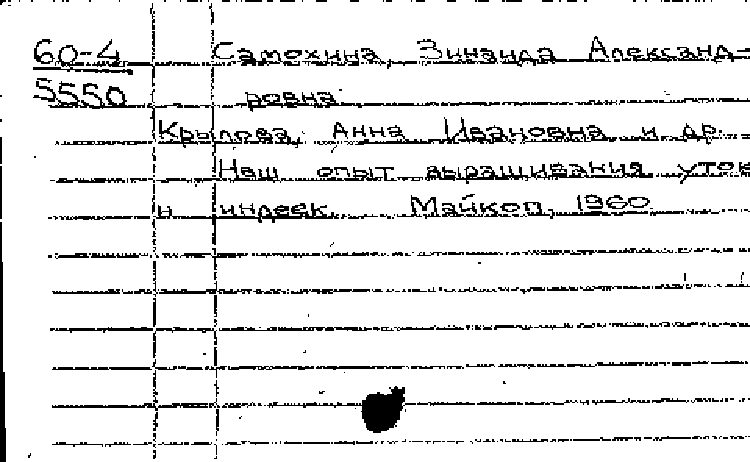 60-4 Самохина, Зинаида Александ-
5550 ровна.
Крылова, Анна Ивановна и др.
Наш опыт выращивания уток
и индеек. Майкоп, 1960